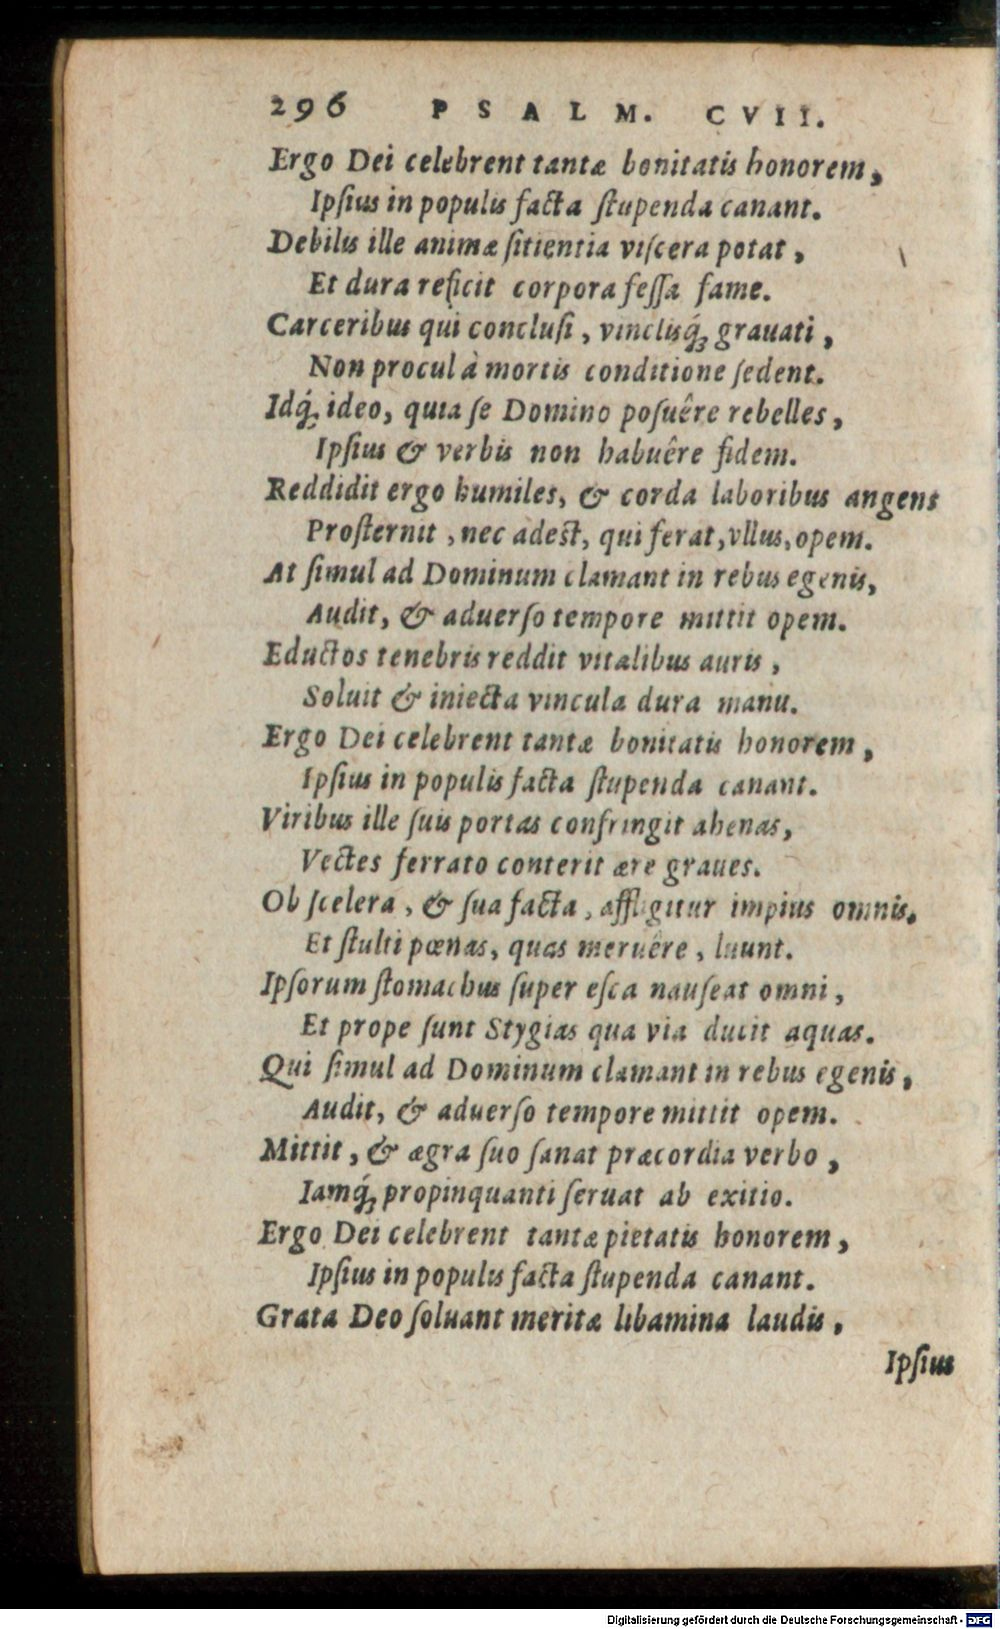 296 PSALM. CVII.
Ergo Dei celebrent tantæ bonitatis honorem,
Ipſius in populis facta ſtupenda canant.
Debilis ille animæ ſitientia viſcera potat,
Et dura reficit corpora feſſa fame.
Carceribus qui concluſi, vincliſq́ꝫ grauati,
Non procul à mortis conditione ſedent.
Idq́ꝫ ideo, quia ſe Domino poſuêre rebelles,
Ipſius & verbis non habuêre fidem.
Reddidit ergo humiles, & corda laboribus angens
Proſternit, nec adest, qui ferat, vllus, opem.
At ſimul ad Dominum clamant in rebus egenis,
Audit, & aduerſo tempore mittit opem.
Eductos tenebris reddit vitalibus auris,
Soluit & iniecta vincula dura manu.
Ergo Dei celebrent tantæ bonitatis honorem,
Ipſius in populis facta ſtupenda canant.
Viribus ille ſuis portas confringit ahenas,
Vectes ferrato conterit ære graues.
Ob ſcelera, & ſua facta, affligitur impius omnis,
Et ſtulti pœnas, quas meruêre, luunt.
Ipſorum ſtomachus ſuper eſca nauſeat omni,
Et prope ſunt Stygias qua via ducit aquas.
Qui ſimul ad Dominum clamant in rebus egenis,
Audit, & aduerſo tempore mittit opem.
Mittit, & ægra ſuo ſanat præcordia verbo,
Iamq́ꝫ propinquanti ſeruat ab exitio.
Ergo Dei celebrent tantæ pietatis honorem,
Ipſius in populis facta ſtupenda canant.
Grata Deo ſoluant meritæ libamina laudis,
Ipſius
Digitalisierung gefördert durch die Deutsche Forschungsgemeinschaft - DFG